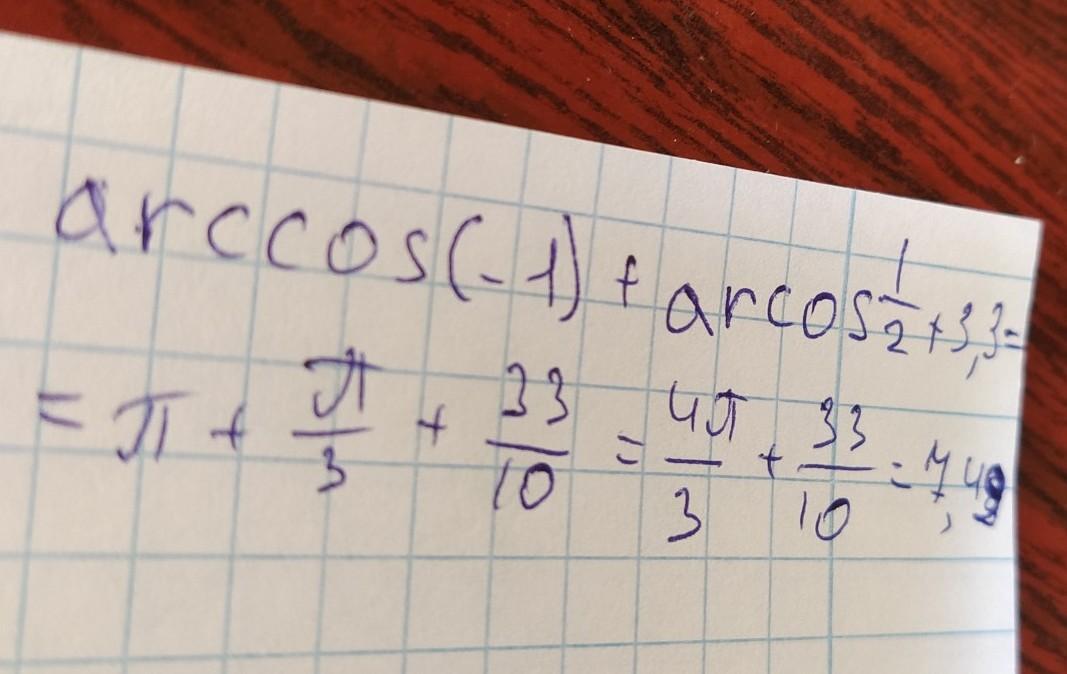 arccos(-1) + arcos 1/2 + 3,3 =
= π + π/3 + 33/10 = 4π/3 + 33/10 = 7,49